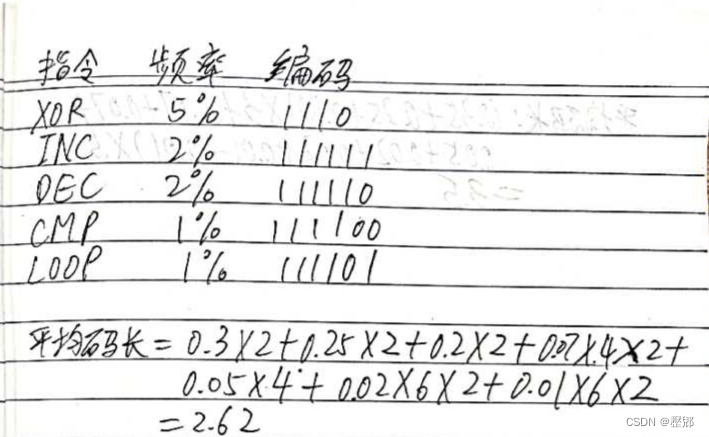 指令 频率 编码
XOR 5% 1110
INC 2% 111111
DEC 2% 111110
CMP 1% 111100
LOOP 1% 111101
平均码长 = 0.3×2+0.25×2+0.2×2+0.07×4×2+
0.05×4+0.02×6×2+0.01×6×2
=2.62
CSDN @壓郷